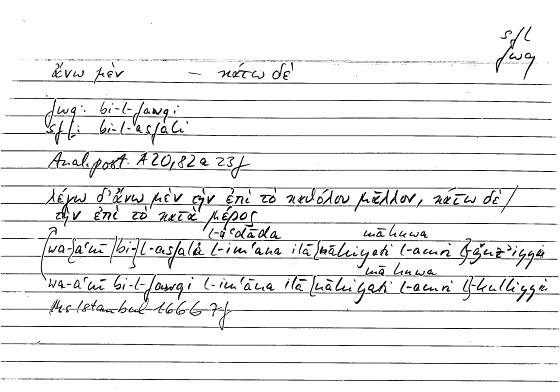 sfl
fwq
ἄνω μὲν — κάτω δὲ
fwq: bi-l-fawqi
sfl: bi-l-asfali
Anal. post. A 20, 82 a 23f
λέγω δ' ἄνω μὲν τὴν ἐπὶ τὸ καθόλου μᾶλλον, κάτω δὲ /
τὴν ἐπὶ τὸ κατὰ μέρος
māhuwa
wa-aʿnī bi-l-asfali l-imʿāna ilā nāḥiyati l-amri l-ǧuzʾiyyi
māhuwa
wa-aʿnī bi-l-fawqi l-imʿāna ilā nāḥiyati l-amri l-kulliyyi
Ms Istanbul 1666 7f